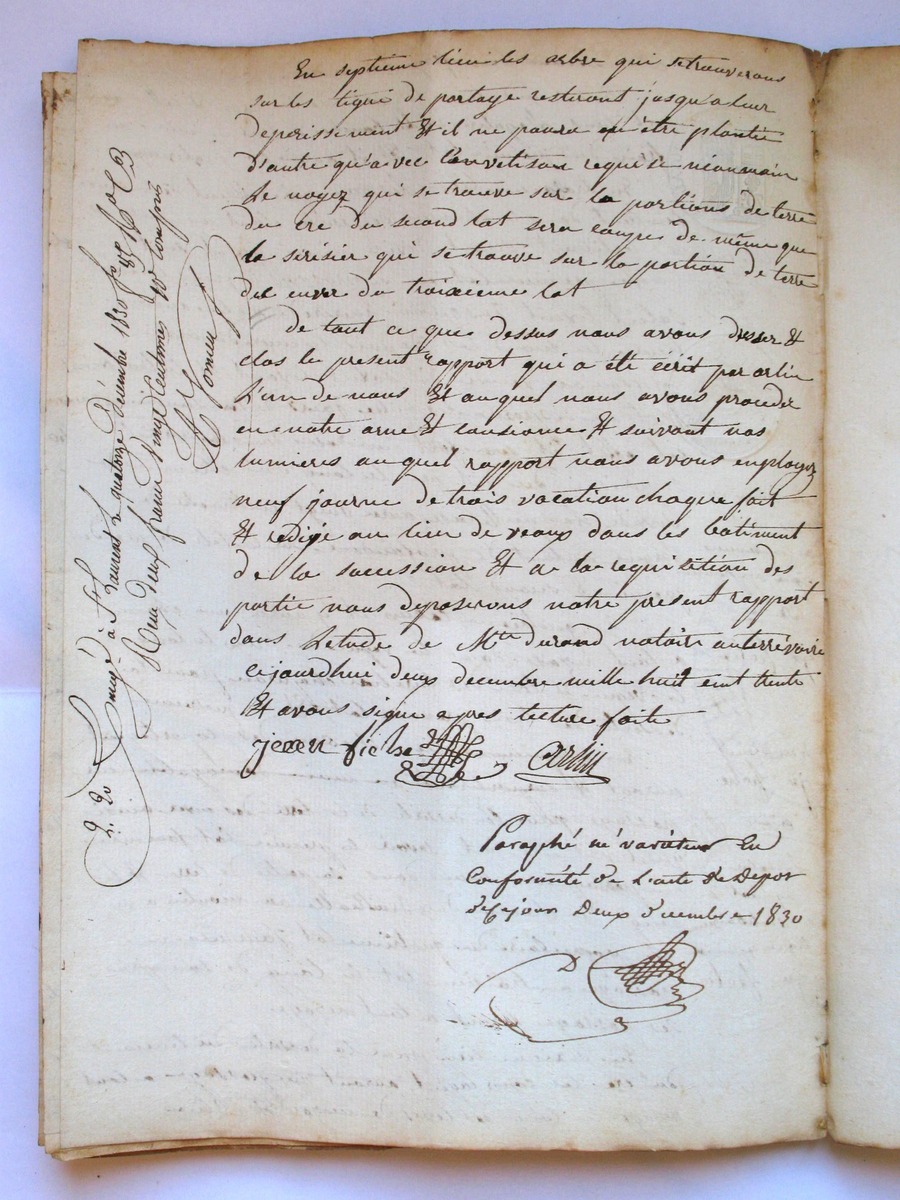 En septieme lieu les arbre qui se trouverons
sur les ligne de partage resteront jusqua leur
deperissement Et il ne poura en être planté
d'autre qu'avec l'autorisation requise néanmoin
Le noyez qui se trouve sur la portions de terre
du cre du second lot sera coupe de même que
la serisier qui se trouve sur la portion de terre
du envers du troixieme lot
De tout ce que dessus nous avons dresser Et
clos le present rapport qui a été écrit par artin
L'un de nous Et auquel nous avons procedé
en notre ame Et consiance Et suivant nos
lumieres auquel rapport nous avons employez
neuf journe de trois vacation chaque fait
Et redigé au lieu de veaux dans les batiment
de la succession Et a la requisition des
partie nous deposerons notre present rapport
dans Letude de Mtre durand notaire
cejourdhui deux decembre mille huit cent trente
Et avons signe apres lecture faite
artin
Paraphé né variétur En
Conformité de L'acte de Depot
de Cejour Deux decembre 1830
Enregé à St Laurent le quatorze décembre 1830 fo 85 Ro Cs
Reçu deux francs vingt centimes 10e compris
2. 20